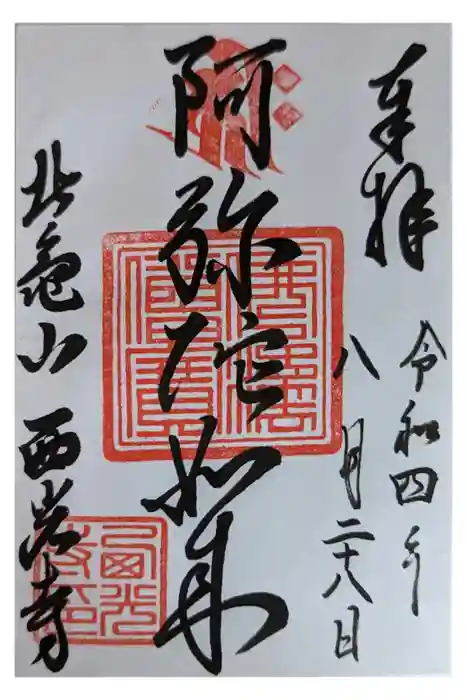 奉拝
令和四年
八月二十八日
阿弥陀如来
北亀山 西光寺